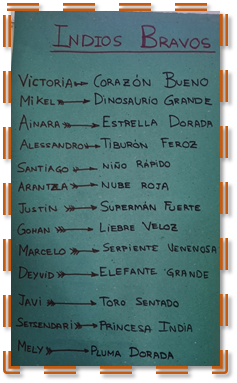 INDIOS BRAVOS
VICTORIA → CORAZÓN BUENO
MIKEL → DINOSAURIO GRANDE
AINARA → ESTRELLA DORADA
ALESSANDRO → TIBURÓN FEROZ
SANTIAGO → NIÑO RÁPIDO
ARANTZLA → NUBE ROJA
JUSTIN → SUPERMÁN FUERTE
GOHAN → LIEBRE VELOZ
MARCELO → SERPIENTE VENENOSA
DEYVID → ELEFANTE GRANDE
JAVI → TORO SENTADO
SETSENDARI → PRINCESA INDIA
MELY → PLUMA DORADA